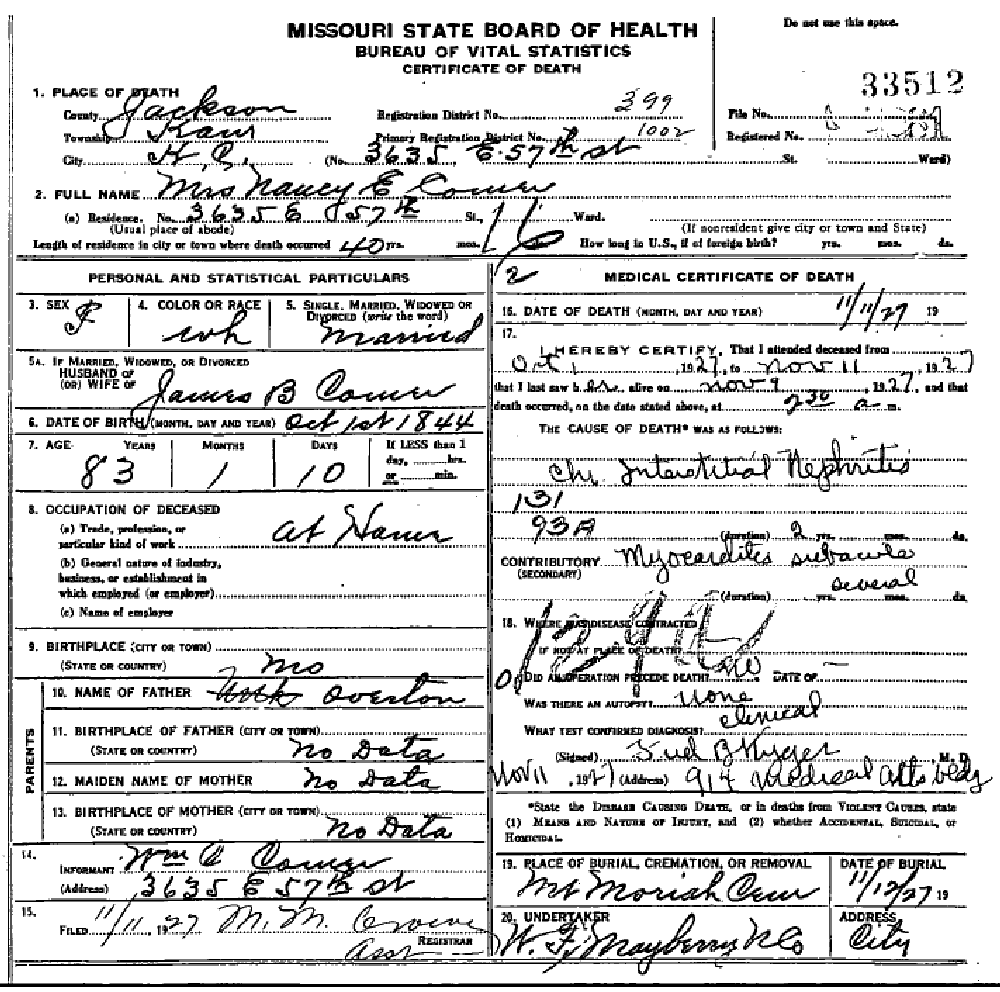 MISSOURI STATE BOARD OF HEALTH
BUREAU OF VITAL STATISTICS
CERTIFICATE OF DEATH
Do not use this space.
33512
1. PLACE OF DEATH
County Jackson Registration District No. 399 File No.
Township Kaw Primary Registration District No. 1002 Registered No.
City K. C. (No. 3635 E. 57th st St. Ward)
2. FULL NAME Mrs Nancy E Comer
(a) Residence. No. 3635 E 57th St., 16 Ward.
(Usual place of abode) (If nonresident give city or town and State)
Length of residence in city or town where death occurred 40 yrs. mos. How long in U.S., if of foreign birth? yrs. mos. ds.
PERSONAL AND STATISTICAL PARTICULARS
3. SEX F
4. COLOR OR RACE wh
5. SINGLE, MARRIED, WIDOWED OR DIVORCED (write the word) married
5A. IF MARRIED, WIDOWED, OR DIVORCED
HUSBAND OF
(OR) WIFE OF James B Comer
6. DATE OF BIRTH (MONTH, DAY AND YEAR) Oct 1st 1844
7. AGE YEARS MONTHS DAYS If LESS than 1
day, hrs.
or min.
83 1 10
8. OCCUPATION OF DECEASED
(a) Trade, profession, or
particular kind of work At Home
(b) General nature of industry,
business, or establishment in
which employed (or employer)
(c) Name of employer
9. BIRTHPLACE (CITY OR TOWN)
(STATE OR COUNTRY) Mo
PARENTS
10. NAME OF FATHER Overton
11. BIRTHPLACE OF FATHER (CITY OR TOWN)
(STATE OR COUNTRY) No Data
12. MAIDEN NAME OF MOTHER No Data
13. BIRTHPLACE OF MOTHER (CITY OR TOWN)
(STATE OR COUNTRY) No Data
14.
INFORMANT Wm C Comer
(Address) 3635 E 57th st
15.
FILED 11/11 1927 M. M.
Asst REGISTRAR
2 MEDICAL CERTIFICATE OF DEATH
16. DATE OF DEATH (MONTH, DAY AND YEAR) 11/11/27 19
17.
I HEREBY CERTIFY, That I attended deceased from
Oct 1, 1927, to Nov 11, 1927
that I last saw her alive on Nov 9, 1927, and that
death occurred, on the date stated above, at 2 30 a m.
THE CAUSE OF DEATH* WAS AS FOLLOWS:
Chr Interstitial Nephritis
131
93A (duration) 2 yrs. mos. ds.
CONTRIBUTORY Myocarditis subacute
(SECONDARY) several
(duration) yrs. mos. ds.
18. WHERE WAS DISEASE CONTRACTED
IF NOT AT PLACE OF DEATH?
DID AN OPERATION PRECEDE DEATH? no DATE OF –
WAS THERE AN AUTOPSY? None
WHAT TEST CONFIRMED DIAGNOSIS? clinical
(Signed) M. D.
Nov 11, 1927 (Address) 914 Medical Arts bldg
*State the DISEASE CAUSING DEATH, or in deaths from VIOLENT CAUSES, state
(1) MEANS AND NATURE OF INJURY, and (2) whether ACCIDENTAL, SUICIDAL, or
HOMICIDAL.
19. PLACE OF BURIAL, CREMATION, OR REMOVAL DATE OF BURIAL
Mt Moriah Cem 11/12/27 19
20. UNDERTAKER ADDRESS
W. F. Mayberry City